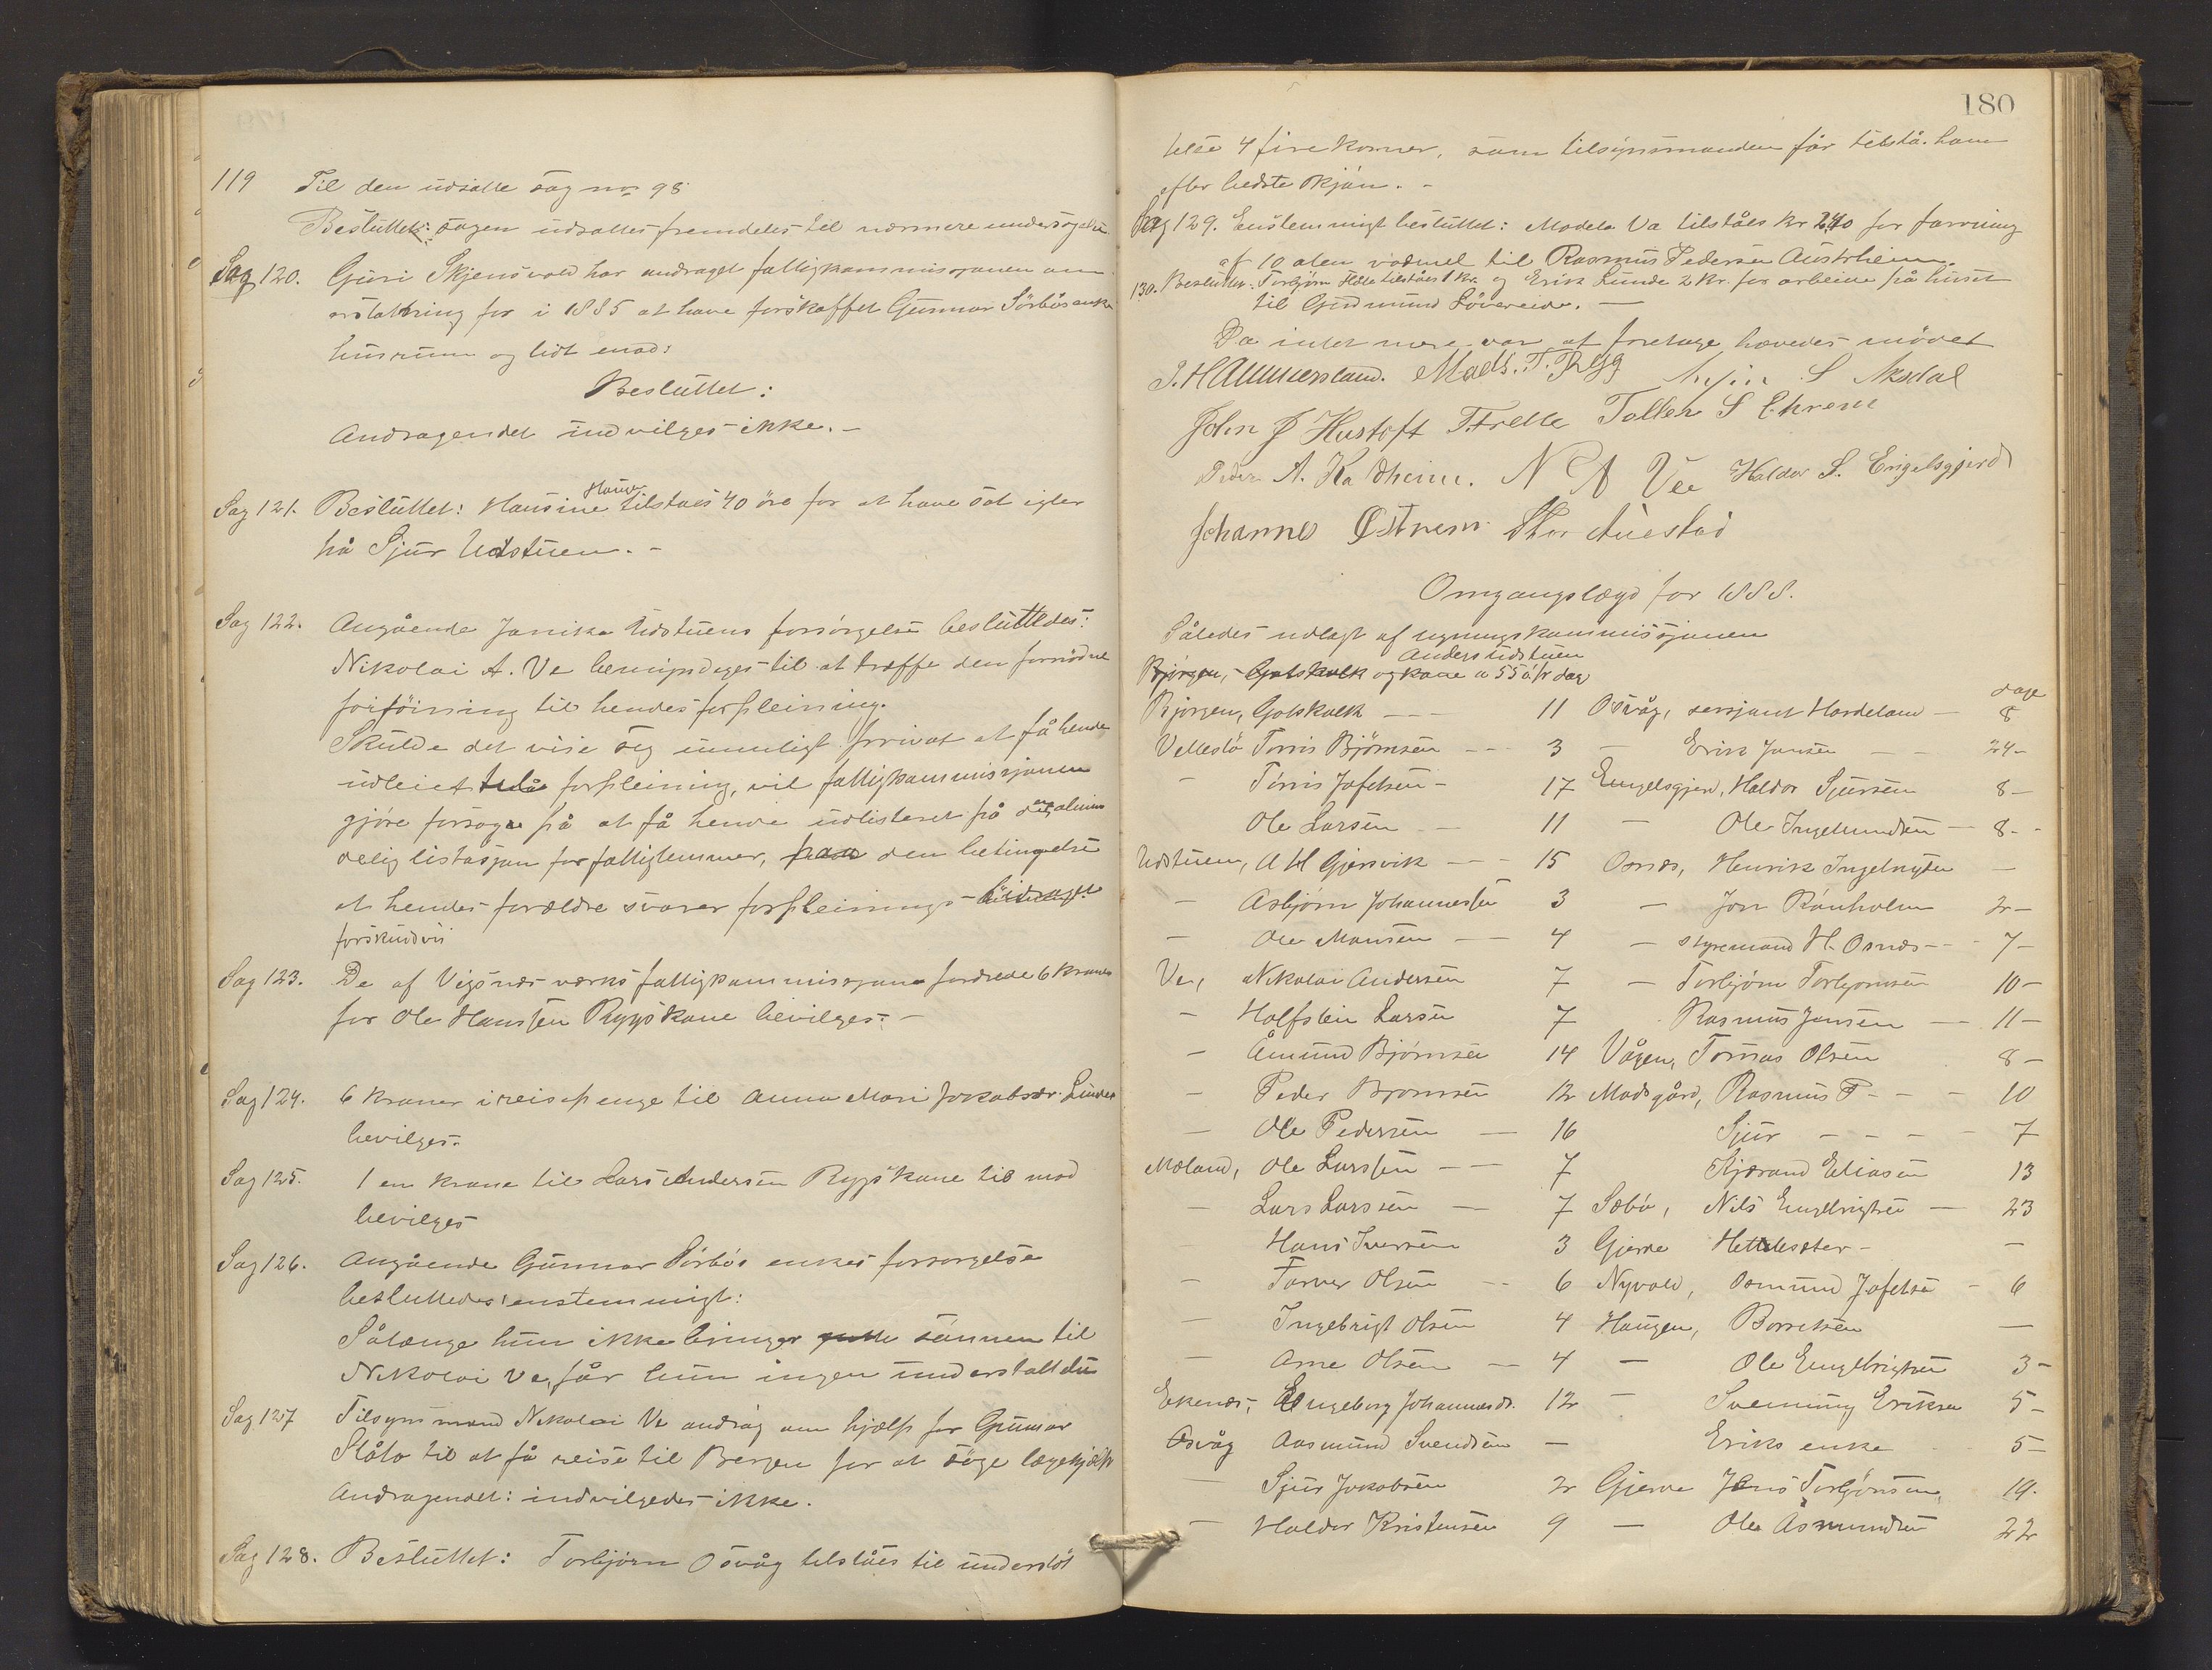 119 Til den udsatte sag no 98
Besluttet: sagen udsattes fremdeles til nærmere undersøgelse
Sag 120. Guri Skjensvold har andraget fattigkommissjonen om
erstatning for i 1885 at have forskaffet Gunnar Sørbøs enke
husrum og lidt mad:
Besluttet:
Andragendet indvilges ikke. –
Hauge
Sag 121. Besluttet: Hansine tilstaaes 40 öre for at have sat igler
på Sjur Udstuen. –
Sag 122. Angående Janika Udstuens forsörgelse besluttedes:
Nikolai A. Ve bemyndiges til at træffe den fornödne
forföining til hendes forpleining.
Skulde det vise sig umuligt privat at få hende
udleiet til forpleining, vil fattigkommissjonen
gjöre forsøg på at få hende udlisteret på den almin
delig listasjon for fattiglemmer, paa den betingelse
at hendes forældre svarer forpleinings-bidraget
forskudvis
Sag 123. De af Vigsnes værks fattigkommissjon fordrede 6 kroner
for Ole Hanssen Ryggs kone bevilges. –
Sag 124. 6 kroner i reisepenge til Anna Mari Jakobsdr. Lindøe
bevilges.
Sag 125. 1 en krone til Lars Andersen Ryggs kone til mad
bevilges
Sag 126. Angående Gunnar Sörbös enkes forsorgelse
besluttedes enstemmigt:
Sålænge hun ikke bringer sönnen til
Nikolai Ve, får hun ingen understöttelse
Sag 127 Tilsynsmand Nikolai Ve androg om hjælp for Gunnar
Slåtö til at få reise til Bergen for at söge lægehjælp
Andragendet: indvilgedes ikke.
Sag 128. Besluttet: Torbjörn Osvåg tilståes til understöt
180
telse 4 fire kroner, som tilsynsmanden får tilstå ham
efter bedste skjön. –
Sag 129. Enstemmigt besluttet: Madela Va tilståes kr 2,40 for farvning
af 10 alen vadmel til Rasmus Pedersen Austrheim.
130. Besluttet: Torbjörn Hole tilståes 1 kr. og Erik Lunde 2 kr. for arbeide på huset
til Gudmund Lövereide. –
Da intet mere var at foretage hævedes mödet
J. Hammersland. Mads. T. Rygg S Aksdal
John J Hustoft T. Fælle Tollek S Ekrene
Peder A. Kaldheim. N A Vee Haldor S. Engelsgjerd
Johannes Østrem Thor Auestad
Omgangslægd for 1888.
Således udlagt af regningskommissjonen
Anders Udstuen
Bjørgen, Gotskalk og kone a 55 ö pr dag
dage
Bjørgen, Gotskalk – – 11 Osvåg, sersjant Hordeland – 8
Vellestö Torris Björnsen – – 3 – Erik Jansen – – 24 –
– Tørris Jofetsen – 17 Engelsgjerd, Haldor Sjursen 8 –
Ole Larsen – 11 – Ole Ingemundsen – 8 –
Udstuen, A H Gjersvik – – 15 Osnes, Henrik Ingebrigtsen –
– Asbjörn Johannessen 3 – Jon Rönholm 2 –
– Ole Monsen – – 4 – styremand H. Osnes – – 7 –
Ve, Nikolai Andersen 7 – Torbjörn Torbjörnsen 10 –
– Halfstein Larsen 7 Rasmus Jonsen – 11 –
– Åmund Björnsen 14 Vågen, Tomas Olsen 8 –
– Peder Bjornsen 12 Madsgård, Rasmus P – – – 10
– Ole Pedersen – 16 Sjur – – – – 7
Mæland, Ole Larssen – – 7 Kjærand Eliasen 13
– Lars Larssen – 7 Sæbö, Nils Engelbrigtsen – 23
Hans Iversen 3 Gjerde Hettelsæter – –
– Torver Olsen – – 6 Nyvold, Osmund Jofetsen – 6
– Ingebrigt Olsen 4 Haugen, Borretsen –
– Arne Olsen – 4 – Ole Engelbrigtsen 3 –
Ekenes, Engeborg Johannesdr. 12 – Svenning Eriksen 5 –
Osvåg Aasmund Svendsen – Eriks enke 5 –
– Sjur Jakobsen 2 Gjerde Jens Torbjörnsen 19.
– Haldor Kristensen 9 – Ole Åsmundsen 22